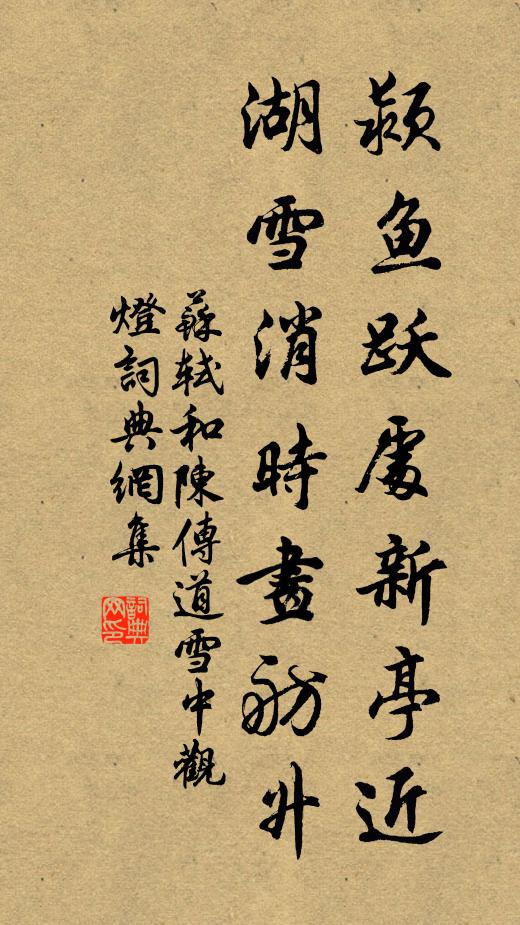 颍鱼跃處新亭近
湖雪消時畫舫升
蘇軾和陳傳道雪中觀
燈詞典網集
詞典
网印